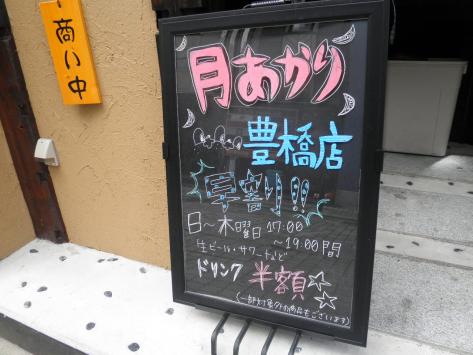 商い中
月あかり
豊橋店
早割り!!
日~木曜日17:00
~19:00間
生ビール・サワーなど
ドリンク 半額☆☆
(一部対象外の商品もございます)